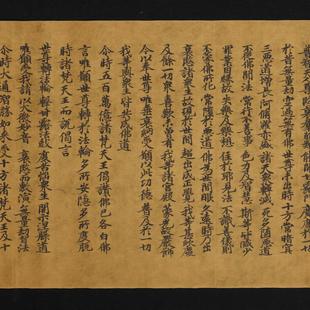 普智天人尊 哀愍群萌類 能開甘露門 廣度於一切
於昔無量劫 空過無有佛 世尊未出時 十方常暗冥
三惡道增長 阿修羅亦盛 諸天衆轉減 死多墮惡道
不從佛聞法 常行不善事 色力及智慧 斯等皆減少
罪業因緣故 失樂及樂想 住於邪見法 不識善儀則
不蒙佛所化 常墮於惡道 佛為世間眼 久遠時乃出
哀愍諸衆生 故現於世間 超出成正覺 我等甚欣慶
及餘一切衆 喜歎未曾有 我等諸宮殿 蒙光故嚴飾
今以奉世尊 唯垂哀納受 願以此功德 普及於一切
我等與衆生 皆共成佛道
尒時五百萬億諸梵天王偈讚佛已各白佛
言唯願世尊轉於法輪多所安隱多所度脫
時諸梵天王而說偈言
世尊轉法輪 擊甘露法鼓 度苦惱衆生 開示涅槃道
唯願受我請 以大微妙音 哀愍而敷演 無量劫習法
尒時大通智勝如來受十方諸梵天王及十